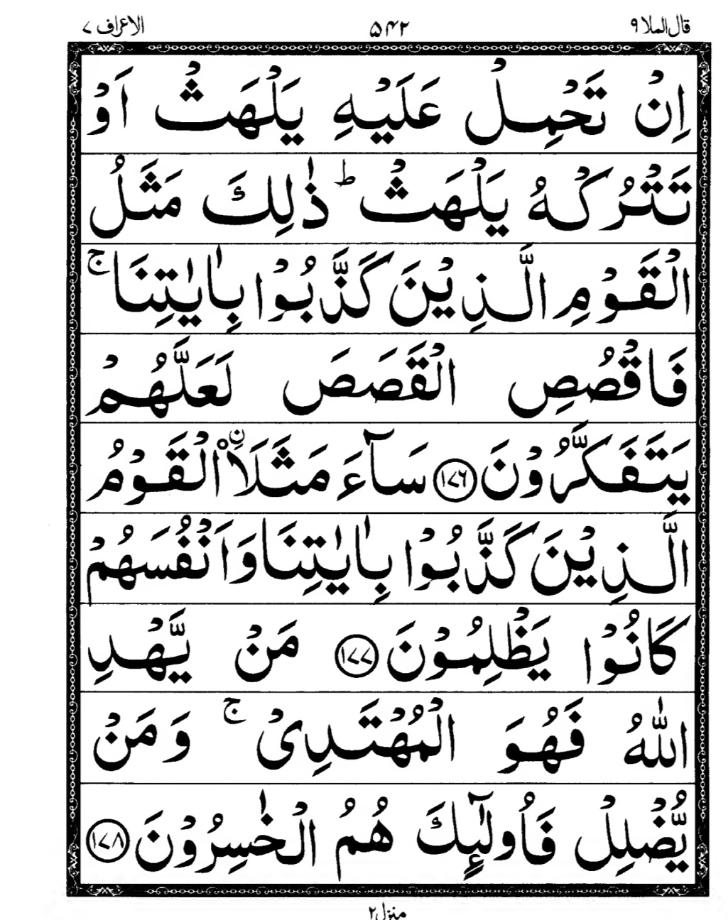 قال الملا ۹ ۵۴۲ الاعراف ۷
اِنْ تَحْمِلْ عَلَيْهِ يَلْهَثْ اَوْ
تَتْرُكْهُ يَلْهَثْ ؕ ذٰلِكَ مَثَلُ
الْقَوْمِ الَّذِيْنَ كَذَّبُوْا بِاٰيٰتِنَا ۚ
فَاقْصُصِ الْقَصَصَ لَعَلَّهُمْ
يَتَفَكَّرُوْنَ ﴿۱۷۶﴾ سَآءَ مَثَلَاۨ الْقَوْمُ
الَّذِيْنَ كَذَّبُوْا بِاٰيٰتِنَا وَاَنْفُسَهُمْ
كَانُوْا يَظْلِمُوْنَ ﴿۱۷۷﴾ مَنْ يَّهْدِ
اللّٰهُ فَهُوَ الْمُهْتَدِىْ ۚ وَمَنْ
يُّضْلِلْ فَاُولٰٓئِكَ هُمُ الْخٰسِرُوْنَ ﴿۱۷۸﴾
منزل ۲